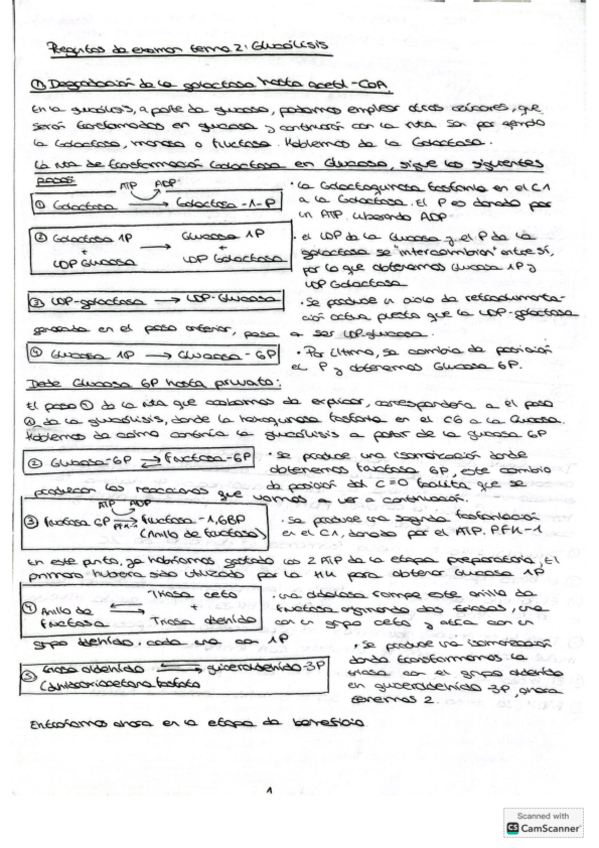 Preguntas de examen tema 2: Glucólisis
① Degradación de la galactosa hasta acetil-CoA
En la glucólisis, a parte de glucosa, podemos emplear otros azúcares, que
serán transformados en glucosa y continuarán con la ruta. Son por ejemplo
la Galactosa, manosa o fructosa. Hablemos de la Galactosa.
La ruta de transformación Galactosa en Glucosa, sigue los siguientes
pasos:
ATP ADP
① Galactosa → Galactosa-1-P
· La Galactoquinasa fosforila en el C1
a la Galactosa. El P es donado por
un ATP. Liberando ADP
② Galactosa 1P → Glucosa 1P
+ +
UDP Glucosa UDP Galactosa
· el UDP de la Glucosa y el P de la
galactosa se "intercambian" entre sí,
por lo que obtenemos Glucosa 1P y
UDP Galactosa
③ UDP-galactosa → UDP-Glucosa
· Se produce un ciclo de retroalimenta-
ción activa puesto que la UDP-galactosa
generada en el paso anterior, pasa a ser UDP-glucosa.
④ Glucosa 1P → Glucosa-6P
· Por último, se cambia de posición
el P y obtenemos Glucosa 6P.
Desde Glucosa 6P hasta piruvato:
El paso ④ de la ruta que acabamos de explicar, correspondería a el paso
① de la glucólisis, donde la hexoquinasa fosforila en el C6 a la Glucosa.
Hablemos de como continúa la glucólisis a partir de la glucosa 6P
② Glucosa-6P ⇌ Fructosa-6P
· se produce una isomerización donde
obtenemos fructosa 6P, este cambio
de posición del C=O facilita que se
produzcan las reacciones que vamos a ver a continuación.
ATP ADP
③ Fructosa 6P ⇌ Fructosa-1,6BP
PFK-1 (Anillo de fructosa)
· Se produce una segunda fosforilación
en el C1, donado por el ATP. PFK-1
En este punto, ya habríamos gastado los 2 ATP de la etapa preparatoria, el
primero hubiera sido utilizado por la HK para obtener Glucosa 1P
④ Anillo de fructosa ⇌ Triosa ceto
+
Triosa aldehído
· una aldolasa rompe este anillo de
fructosa originando dos triosas, una
con un grupo ceto y otra con un
grupo aldehído. cada una con 1P
⑤ triosa aldehído ⇌ gliceraldehído-3P
(dihidroxiacetona fosfato
· Se produce una isomerización
donde transformamos la
triosa con el grupo aldehído
en gliceraldehído 3P, ahora
tenemos 2.
Entraríamos ahora en la etapa de beneficio
1
Scanned with
CS CamScanner